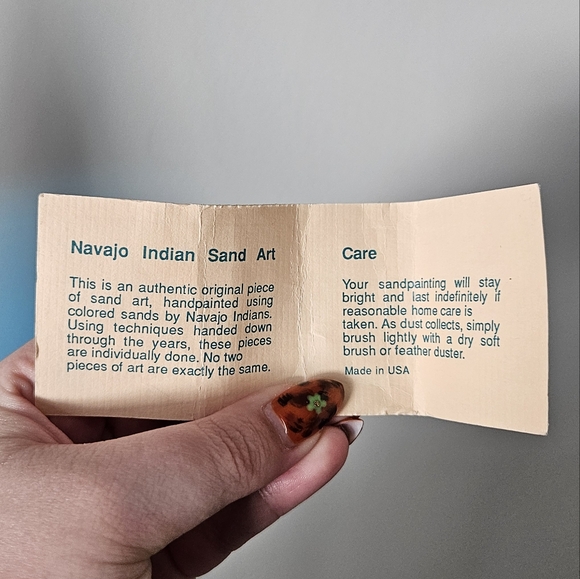 Navajo Indian Sand Art
This is an authentic original piece
of sand art, handpainted using
colored sands by Navajo Indians.
Using techniques handed down
through the years, these pieces
are individually done. No two
pieces of art are exactly the same.
Care
Your sandpainting will stay
bright and last indefinitely if
reasonable home care is
taken. As dust collects, simply
brush lightly with a dry soft
brush or feather duster.
Made in USA